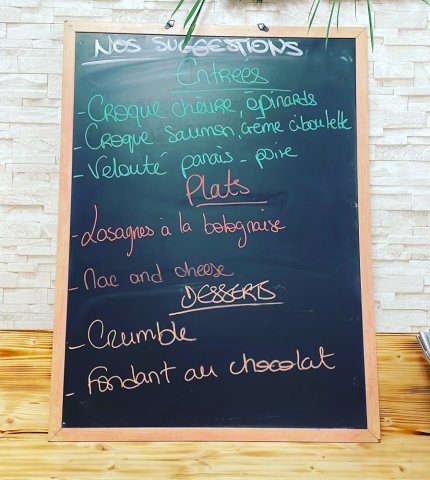 NOS SUGGESTIONS
Entrées
- Croque chèvre, épinards
- Croque saumon, crème ciboulette
- Velouté panais - poire
Plats
- Lasagnes à la bolognaise
- Mac and cheese
DESSERTS
- Crumble
- Fondant au chocolat